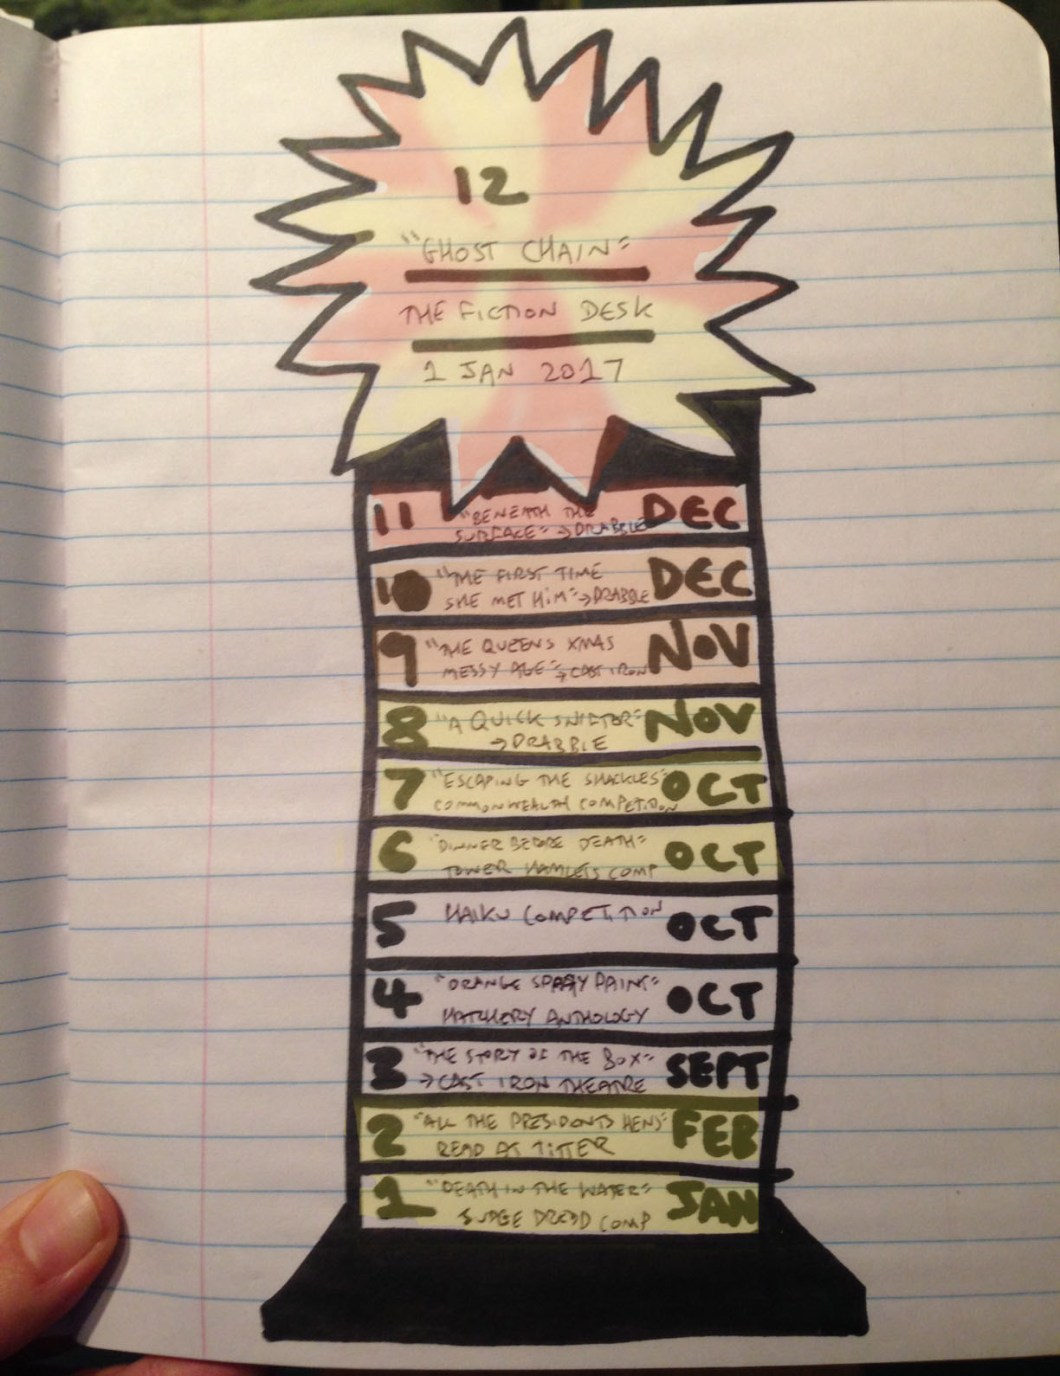 12
"GHOST CHAIN"
THE FICTION DESK
1 JAN 2017
11 "BENEATH THE DEC
SURFACE" → DRABBLE
10 "THE FIRST TIME DEC
SHE MET HIM" → DRABBLE
9 "THE QUEENS XMAS NOV
MESSYAGE" → CAST IRON
8 "A QUICK SNIFTER" NOV
→ DRABBLE
7 "ESCAPING THE SHACKLES" OCT
COMMONWEALTH COMPETITION
6 "DINNER BEFORE DEATH" OCT
TOWER HAMLETS COMP
5 HAIKU COMPETITION OCT
4 "ORANGE SPRAY PAINT" OCT
HATCHERY ANTHOLOGY
3 "THE STORY OF THE BOX" SEPT
→ CAST IRON THEATRE
2 "ALL THE PRESIDONTS HENS" FEB
READ AT TITTER
1 "DEATH IN THE WATER" JAN
JUDGE DREDD COMP